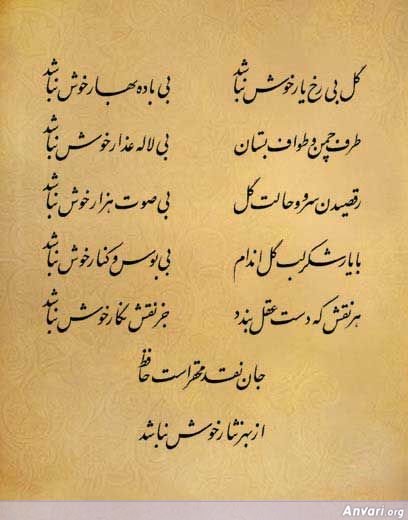 گل بی رخ یار خوش نباشد بی باده بهار خوش نباشد
طرف چمن و طواف بستان بی لاله عذار خوش نباشد
رقصیدن سرو و حالت گل بی صوت هزار خوش نباشد
با یار شکرلب گل اندام بی بوس و کنار خوش نباشد
هر نقش که دست عقل بندد جز نقش نگار خوش نباشد
جان نقد محقر است حافظ
از بهر نثار خوش نباشد
Anvari.org